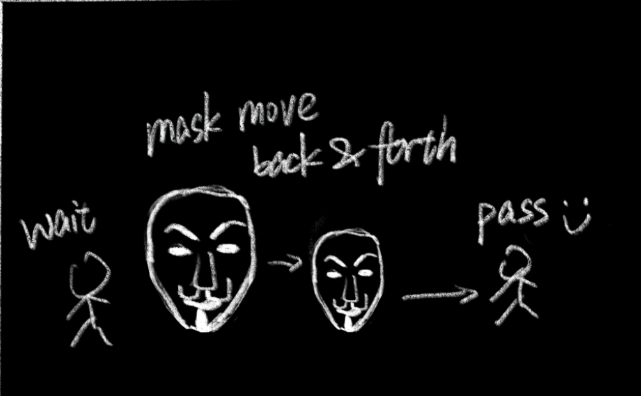 mask move
back & forth
wait
pass :)